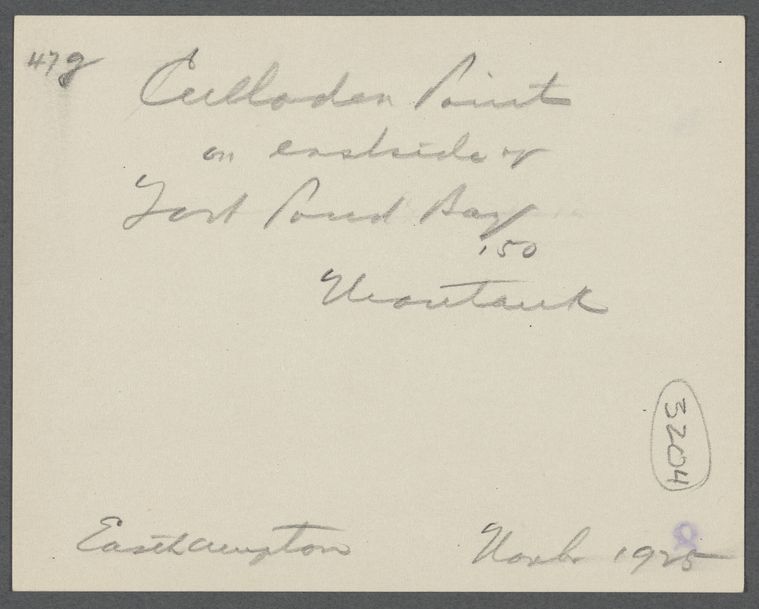 47g
Culloden Point
on eastside of
Fort Pond Bay
.50
Montauk
3204
Easthampton Novbr 1925
8